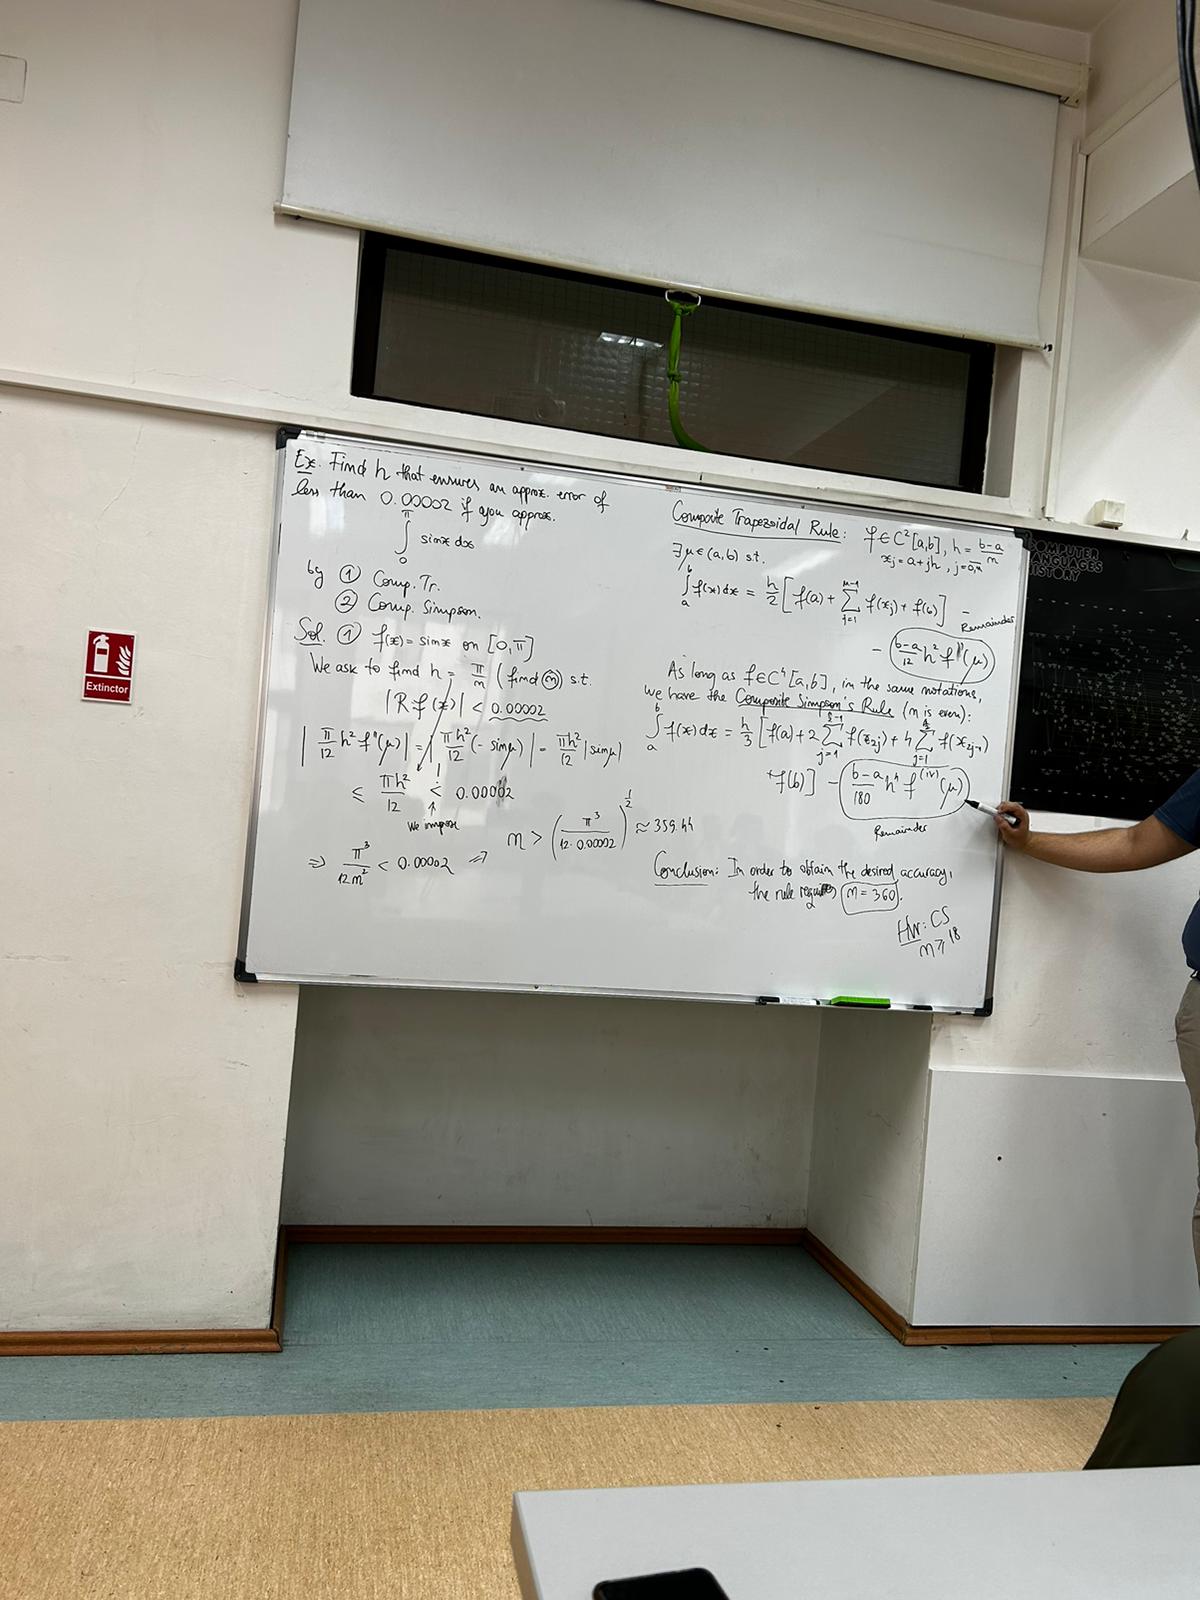 Ex. Find h that ensures an approx. error of
less than 0.00002 if you approx.
∫_0^π sinx dx
by ① Comp. Tr.
② Comp. Simpson.
Sol. ① f(x) = sinx on [0,π]
We ask to find h = π/n (find n) s.t.
|Rf(x)| < 0.00002
|π/12 h² f''(μ)| = |πh²/12 (- sinμ)| = πh²/12 |sinμ|
≤ πh²/12 < 0.00002
!
↑
We impose
⇒ π³/12n² < 0.00002 ⇒ n > (π³/12·0.00002)^(1/2) ≈ 359.44
Composite Trapezoidal Rule: f ∈ C²[a,b], h = b-a/n
x_j = a+jh, j=0,n
∃ μ∈(a,b) s.t.
∫_a^b f(x)dx = h/2 [f(a) + Σ_{j=1}^{n-1} f(x_j) + f(b)] -
Remainder
- b-a/12 h² f''(μ)
As long as f∈C⁴[a,b], in the same notations,
we have the Composite Simpson's Rule (n is even):
∫_a^b f(x)dx = h/3 [f(a) + 2 Σ_{j=1}^{n/2-1} f(x_2j) + 4 Σ_{j=1}^{n/2} f(x_{2j-1})
+f(b)] - b-a/180 h⁴ f^(iv)(μ)
Remainder
Conclusion: In order to obtain the desired accuracy,
the rule requires n = 360.
HW: CS
n ≥ 18
COMPUTER
LANGUAGES
HISTORY
Extinctor